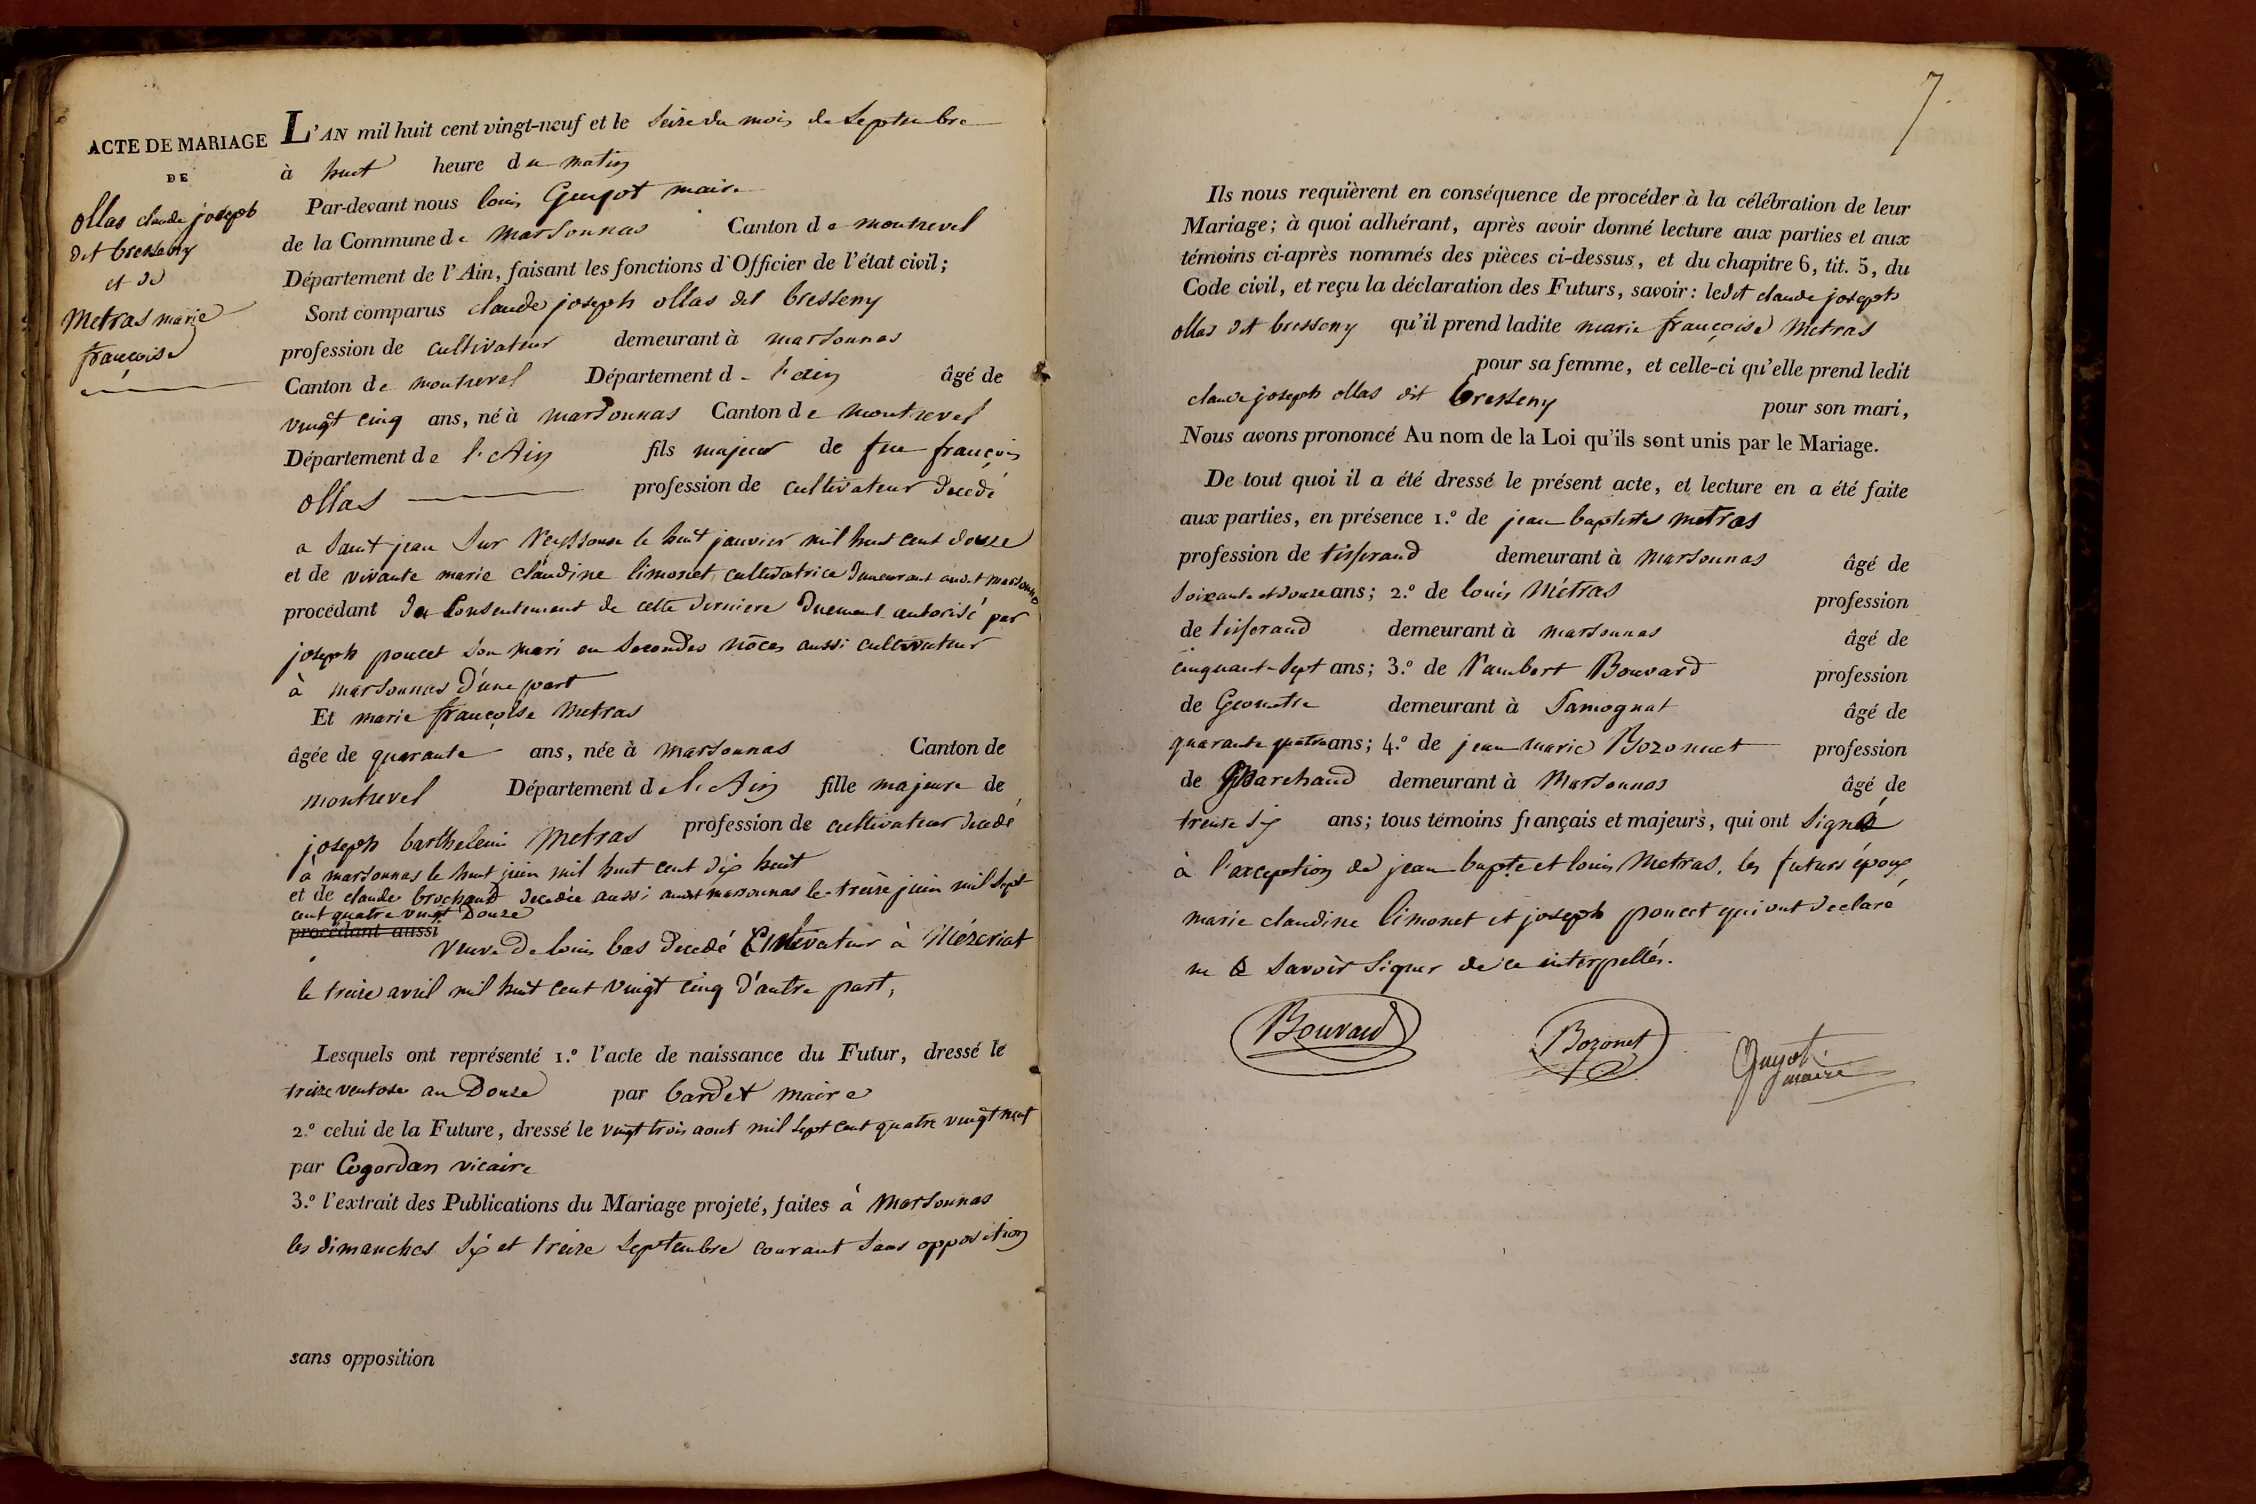 ACTE DE MARIAGE
DE
ollas claude joseph
dit bresseny
et de
Metras marie
françoise
L'AN mil huit cent vingt-neuf et le seize du mois de septembre
à huit heure du matin
Par-devant nous louis Guyot maire
de la Commune de marsonnas Canton de montrevel
Département de l'Ain, faisant les fonctions d'Officier de l'état civil;
Sont comparus claude joseph ollas dit bresseny
profession de cultivateur demeurant à marsonnas
Canton de montrevel Département d l'ain âgé de
vingt cinq ans, né à marsonnas Canton de montrevel
Département de l'Ain fils majeur de feu françois
ollas profession de cultivateur decedé
a saint jean sur Reyssouse le huit janvier mil huit cent douze
et de vivante marie claudine limonet, cultivatrice demeurant audit marsonnas
procédant du consentement de cette derniere duement autorisé par
joseph poncet son mari en secondes nôces aussi cultivateur
à marsonnas d'une part
Et marie françoise metras
âgée de quarante ans, née à marsonnas Canton de
montrevel Département de l'Ain fille majeure de
joseph barthelemi Metras profession de cultivateur decedé
à marsonnas le huit juin mil huit cent dix huit
et de claude brochand decedée aussi audit marsonnas le treize juin mil sept
cent quatre vingt douze
procédant aussi
veuve de louis bas decedé Cultivateur à Mézeriat
le treize avril mil huit cent vingt cinq d'autre part,
Lesquels ont représenté 1.º l'acte de naissance du Futur, dressé le
treize ventose an Douze par bardet maire
2.º celui de la Future, dressé le vingt trois aout mil sept cent quatre vingt neuf
par Cogordan vicaire
3.º l'extrait des Publications du Mariage projeté, faites à Marsonnas
les dimanches six et treize septembre courant sans opposition
sans opposition
7.
Ils nous requièrent en conséquence de procéder à la célébration de leur
Mariage; à quoi adhérant, après avoir donné lecture aux parties et aux
témoins ci-après nommés des pièces ci-dessus, et du chapitre 6, tit. 5, du
Code civil, et reçu la déclaration des Futurs, savoir: ledit claude joseph
ollas dit bresseny qu'il prend ladite marie françoise Metras
pour sa femme, et celle-ci qu'elle prend ledit
claude joseph ollas dit bresseny pour son mari,
Nous avons prononcé Au nom de la Loi qu'ils sont unis par le Mariage.
De tout quoi il a été dressé le présent acte, et lecture en a été faite
aux parties, en présence 1.º de jean baptiste metras
profession de tisserand demeurant à marsonnas âgé de
soixante et douze ans; 2.º de louis Métras profession
de tisserand demeurant à marsonnas âgé de
cinquante sept ans; 3.º de Rambert Bouvard profession
de Geometre demeurant à Samognat âgé de
quarante quatre ans; 4.º de jean marie Bozonnet profession
de Marchand demeurant à Marsonnas âgé de
trente six ans; tous témoins français et majeurs, qui ont signé
à l'exception de jean bapte et louis Metras, les futurs époux
marie claudine limonet et joseph poncet qui ont declaré
ne savoir signer de ce interpellés.
Bouvard
Bozonet
Guyot
maire